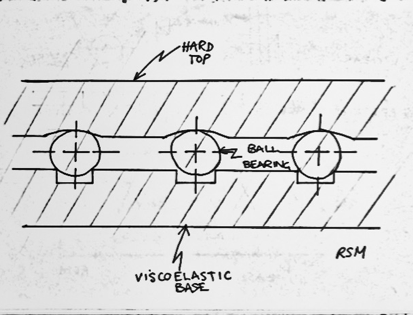 HARD
TOP
BALL
BEARING
RSM
VISCOELASTIC
BASE